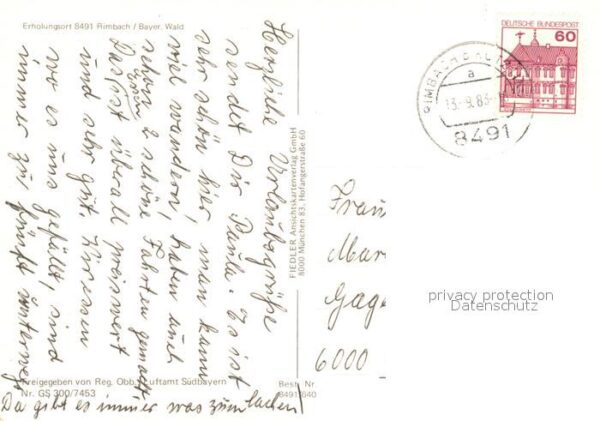 Erholungsort 8491 Rimbach / Bayer. Wald
Herzliche Urlaubsgrüße
sendet Dir Paula. Es ist
sehr schön hier man kann
viel wandern, haben auch
schon 2 schöne Fahrten gemacht,
Essen
Das ist überall preiswert
und sehr gut,
wo es uns gefällt, sind
immer zu fünft unterwegs
Da gibt es immer was zum lachen
Freigegeben von Reg. Obb. Luftamt Südbayern
Nr. GS 300/7453
Best. Nr
8491/840
FIEDLER Ansichtskartenverlag GmbH
8000 München 83, Hofangerstraße 60
DEUTSCHE BUNDESPOST
60
a
8491
Frau
Mar
Gage
6000
privacy protection
Datenschutz